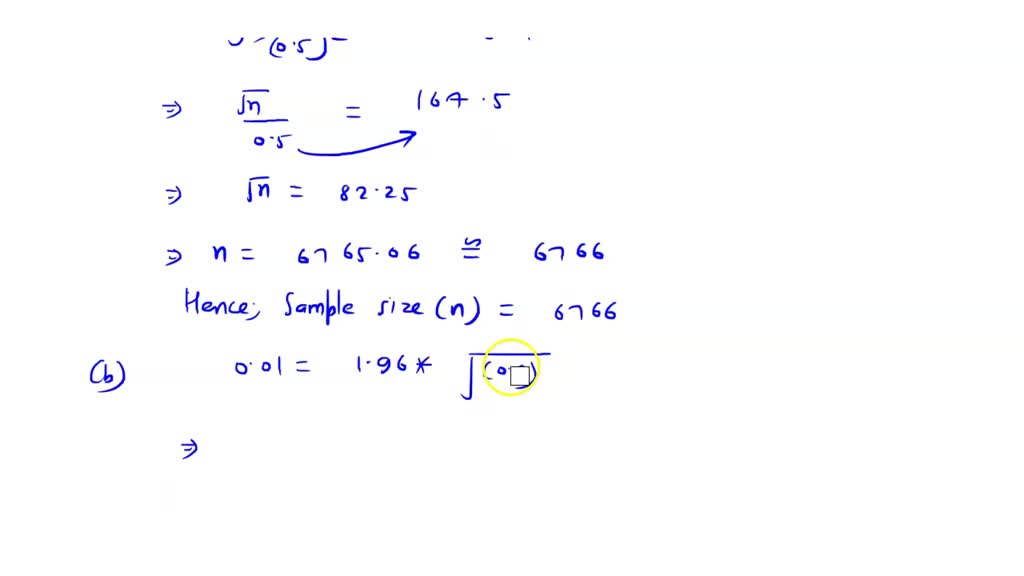 (0.5)
⇒ √n / 0.5 = 164.5
⇒ √n = 82.25
⇒ n = 6765.06 ≅ 6766
Hence, Sample size (n) = 6766
(b) 0.01 = 1.96 * √(0.
⇒